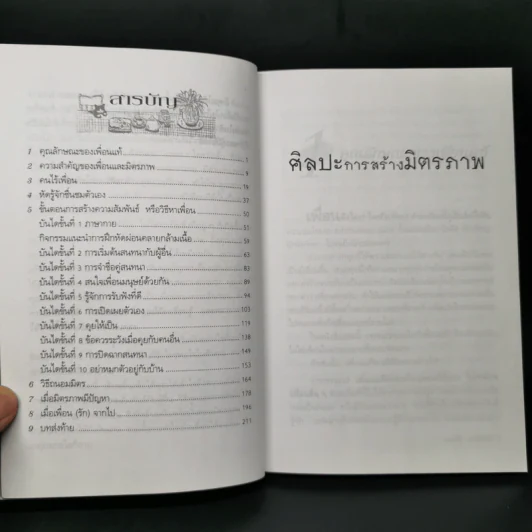 สารบัญ
1 คุณลักษณะของเพื่อนแท้ 1
2 ความสำคัญของเพื่อนและมิตรภาพ 9
3 คนไร้เพื่อน 19
4 หัดรู้จักชื่นชมตัวเอง 37
5 ขั้นตอนการสร้างความสัมพันธ์ หรือวิธีหาเพื่อน 51
บันไดขั้นที่ 1 ภาษากาย 51
กิจกรรมแนะนำการฝึกหัดผ่อนคลายกล้ามเนื้อ 59
บันไดขั้นที่ 2 การเริ่มต้นสนทนากับผู้อื่น 63
บันไดขั้นที่ 3 การจำชื่อคู่สนทนา 81
บันไดขั้นที่ 4 สนใจเพื่อนมนุษย์ด้วยกัน 89
บันไดขั้นที่ 5 รู้จักการรับฟังที่ดี 94
บันไดขั้นที่ 6 การเปิดเผยตัวเอง 103
บันไดขั้นที่ 7 คุยให้เป็น 119
บันไดขั้นที่ 8 ข้อควรระวังเมื่อคุยกับคนอื่น 138
บันไดขั้นที่ 9 การปิดฉากสนทนา 149
บันไดขั้นที่ 10 อย่าหมกตัวอยู่กับบ้าน 153
6 วิธีถนอมมิตร 169
7 เมื่อมิตรภาพมีปัญหา 178
8 เมื่อเพื่อน (รัก) จากไป 196
9 บทส่งท้าย 211
ศิลปะการสร้างมิตรภาพ